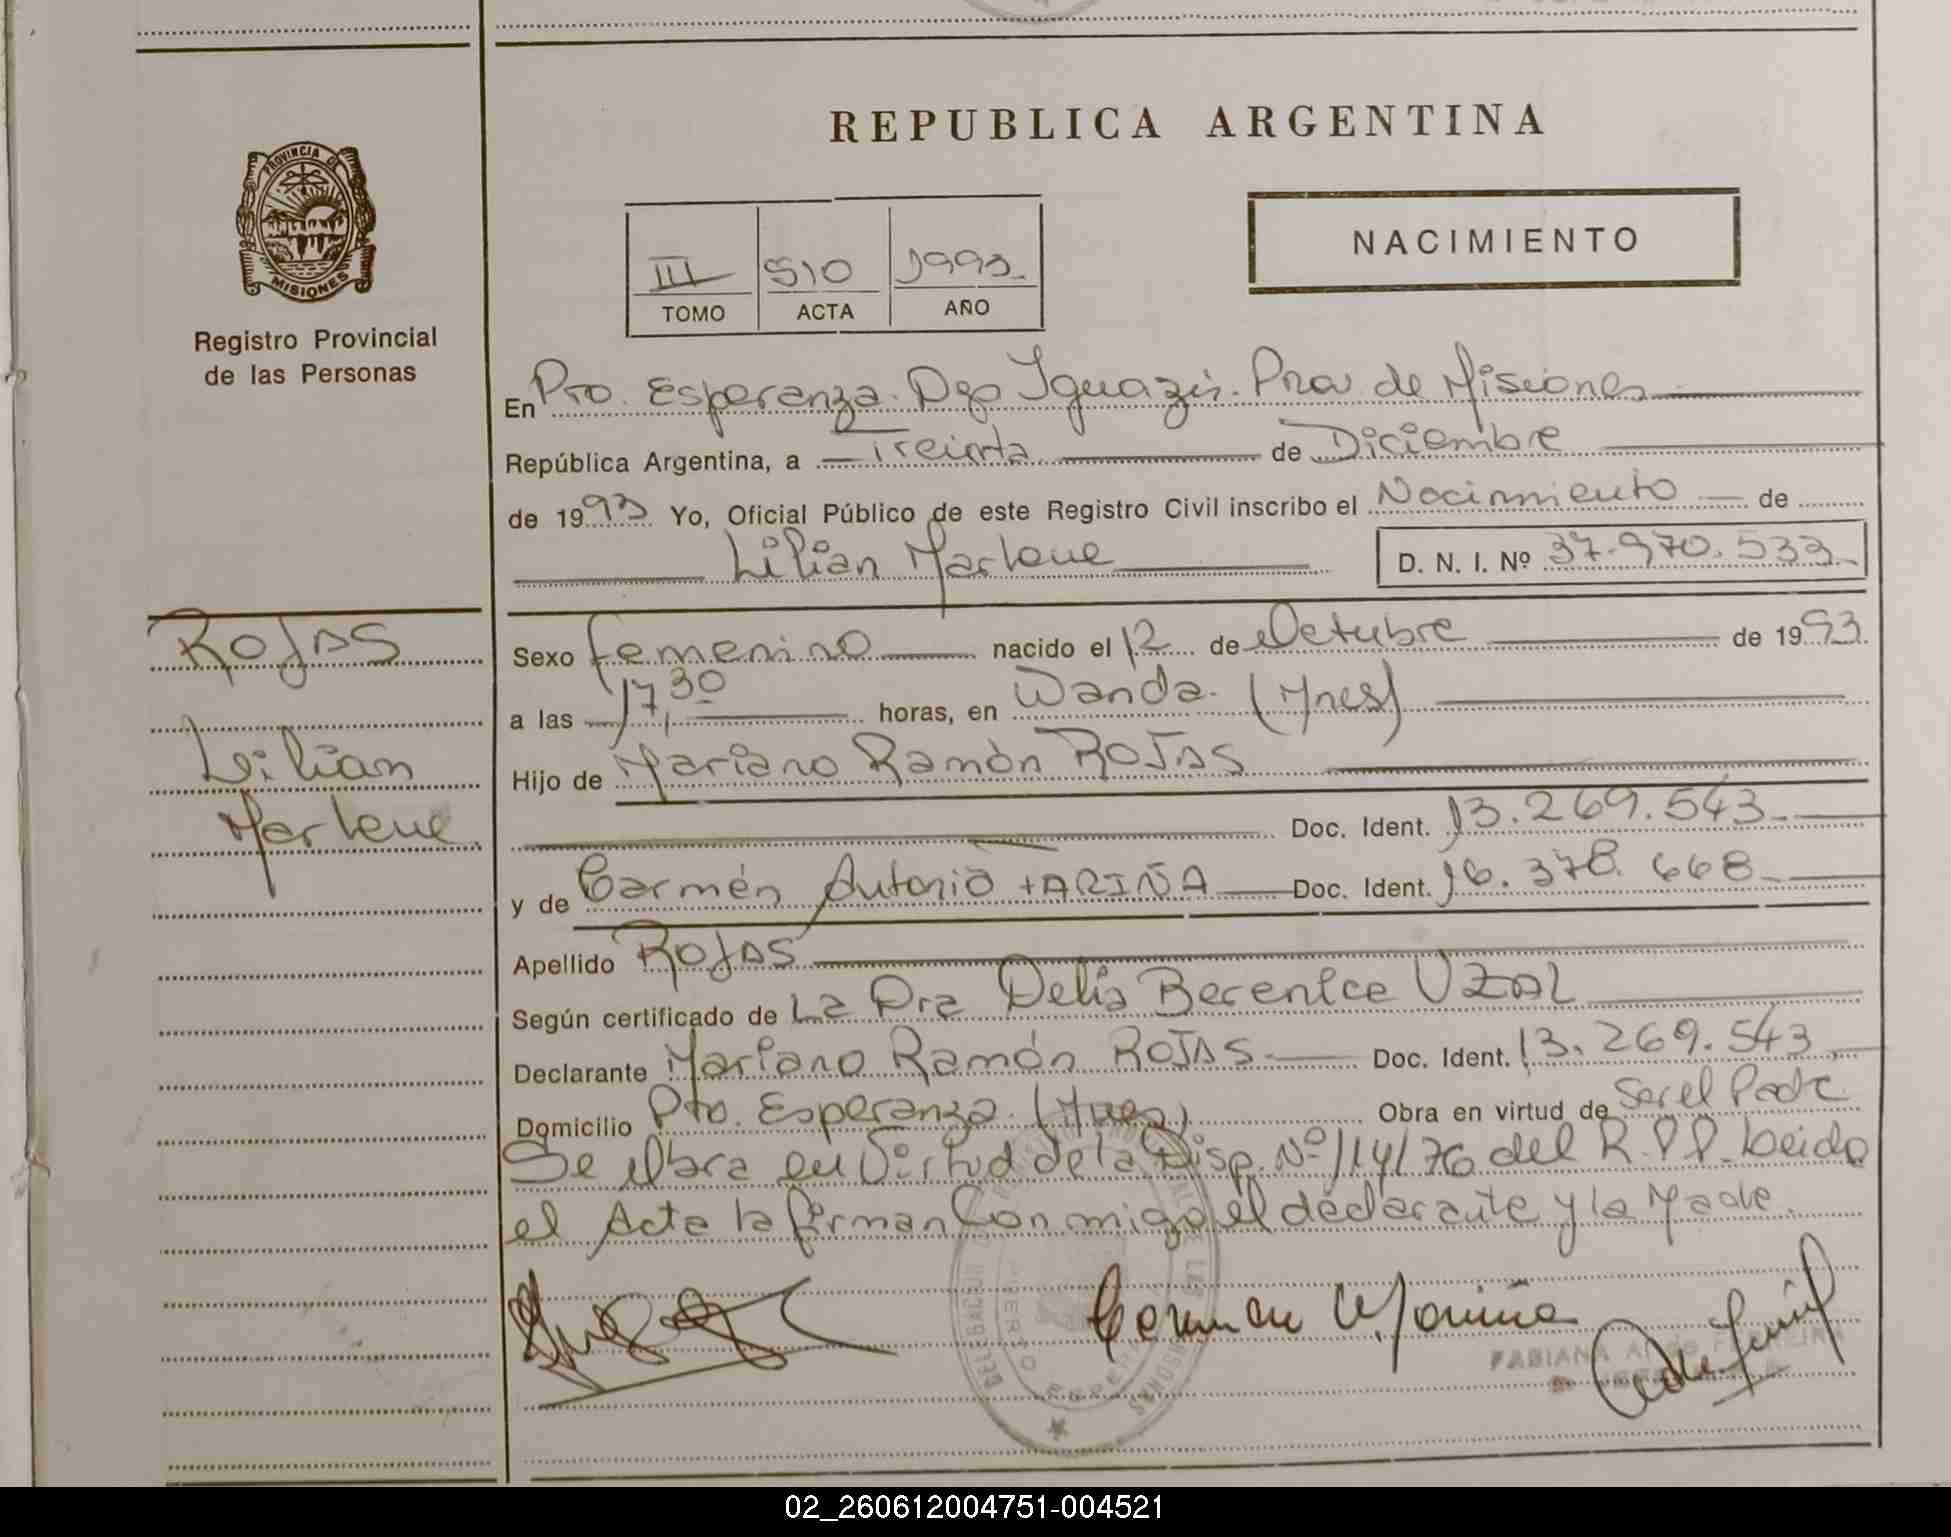 REPUBLICA ARGENTINA
NACIMIENTO
III 510 1993
TOMO ACTA AÑO
PROVINCIA DE
MISIONES
Registro Provincial
de las Personas
En Pto. Esperanza. Dgo Iguazú. Prov. de Misiones
República Argentina, a Treinta de Diciembre
de 1993 Yo, Oficial Público de este Registro Civil inscribo el Nacimiento de
Lilian Marlene D. N. I. Nº 37.970.533
ROJAS
Lilian
Marlene
Sexo femenino nacido el 12 de Octubre de 1993
a las 17,30 horas, en Wanda. (Mnes)
Hijo de Mariano Ramón ROJAS
Doc. Ident. 13.269.543
y de Carmén Antonia FARIÑA Doc. Ident. 16.378.668
Apellido ROJAS
Según certificado de La Dra Delia Berenice UZAL
Declarante Mariano Ramón ROJAS Doc. Ident. 13.269.543
Domicilio Pto. Esperanza. (Mnes) Obra en virtud de Ser el Padre
Se labra en Virtud de la Disp. Nº 114/76 del R.P.P. Leida
el Acta la firman Con migo el declarante y la Madre.
Carmen A. Fariña
FABIANA
02_260612004751-004521